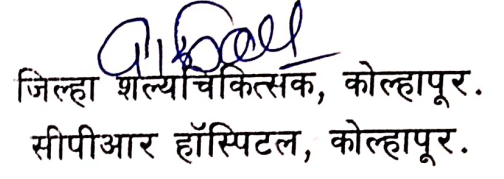 जिल्हा शल्यचिकित्सक, कोल्हापूर.
सीपीआर हॉस्पिटल, कोल्हापूर.